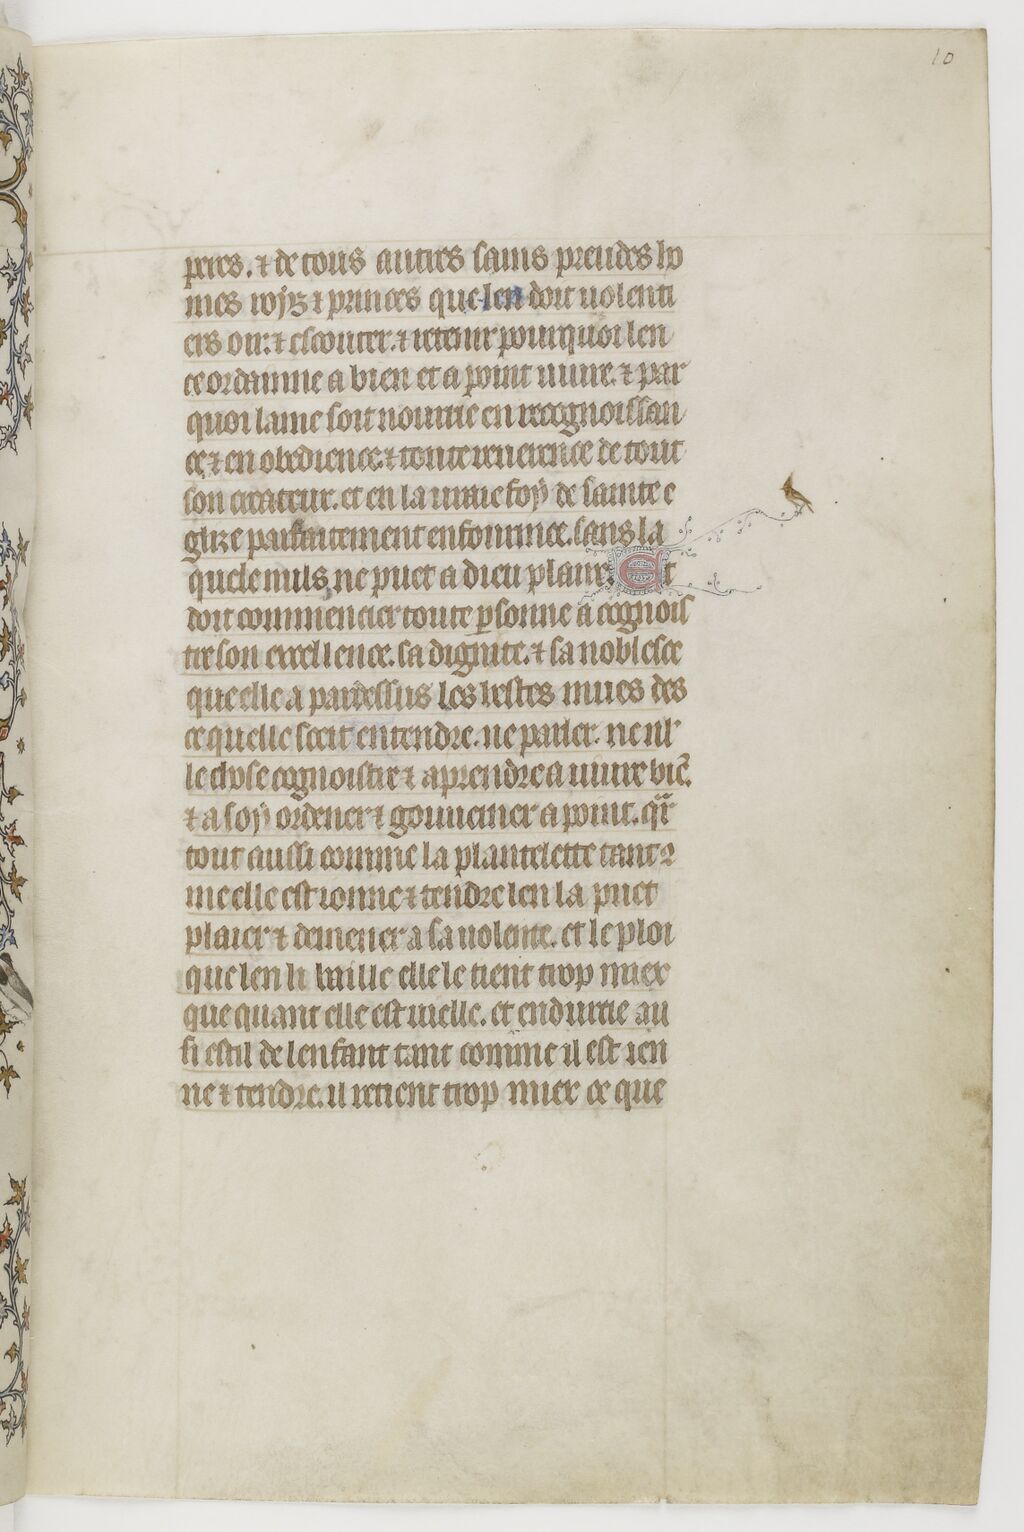 10
peres. ⁊ de tous autres sains preudes ho
mes roys ⁊ princes que len doit uolenti
ers oir. ⁊ escouter. ⁊ retenir pour quoi len
ce ordanne a bien et a point uiure. ⁊ par
quoi lame soit nourrie en recognoissan
ce. ⁊ en obedience. ⁊ toute reuerence de tout
son createur. et en la uraie foy de sainte e
glize parfaitement enfourmee. sans la
quele nuls ne puet a dieu plaire. Et
doit commencier toute psonne a cognois
tre son excellence. sa dignite. ⁊ sa noblesce
que elle a par dessus les bestes mues des
ce quelle sceit entendre. ne parler. ne nl'
le chose cognoistre ⁊ aprendre a uiure biē.
⁊ a soy ordener ⁊ gouuerner a point. qr
tout aussi comme la plantelette tant 9
me elle est ionne ⁊ tendre len la puet
plaier ⁊ demener a sa uolente. et le ploi
que len li baille elle le tient trop miex
que quant elle est uielle. et endurcie au
si est il de lenfant tant comme il est ien
ne ⁊ tendre. il retient trop miex ce que